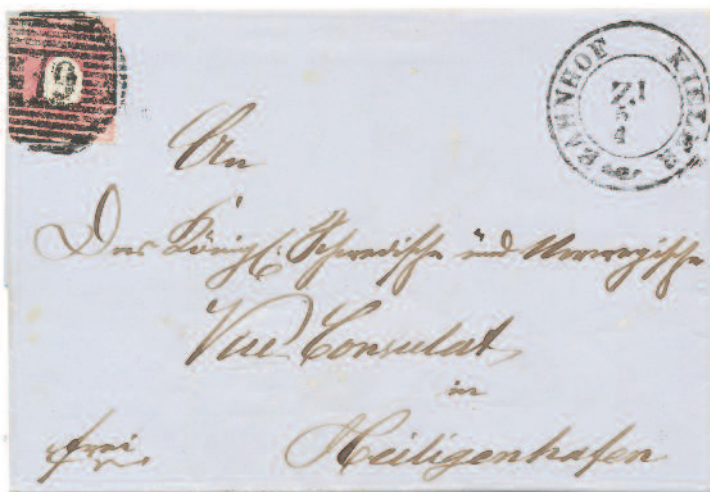 19
KIELER BAHNHOF
Z.1
5
4
An
Das Königl: Schwedische und Norwegische
Vice Consulat
in
Heiligenhafen
frei